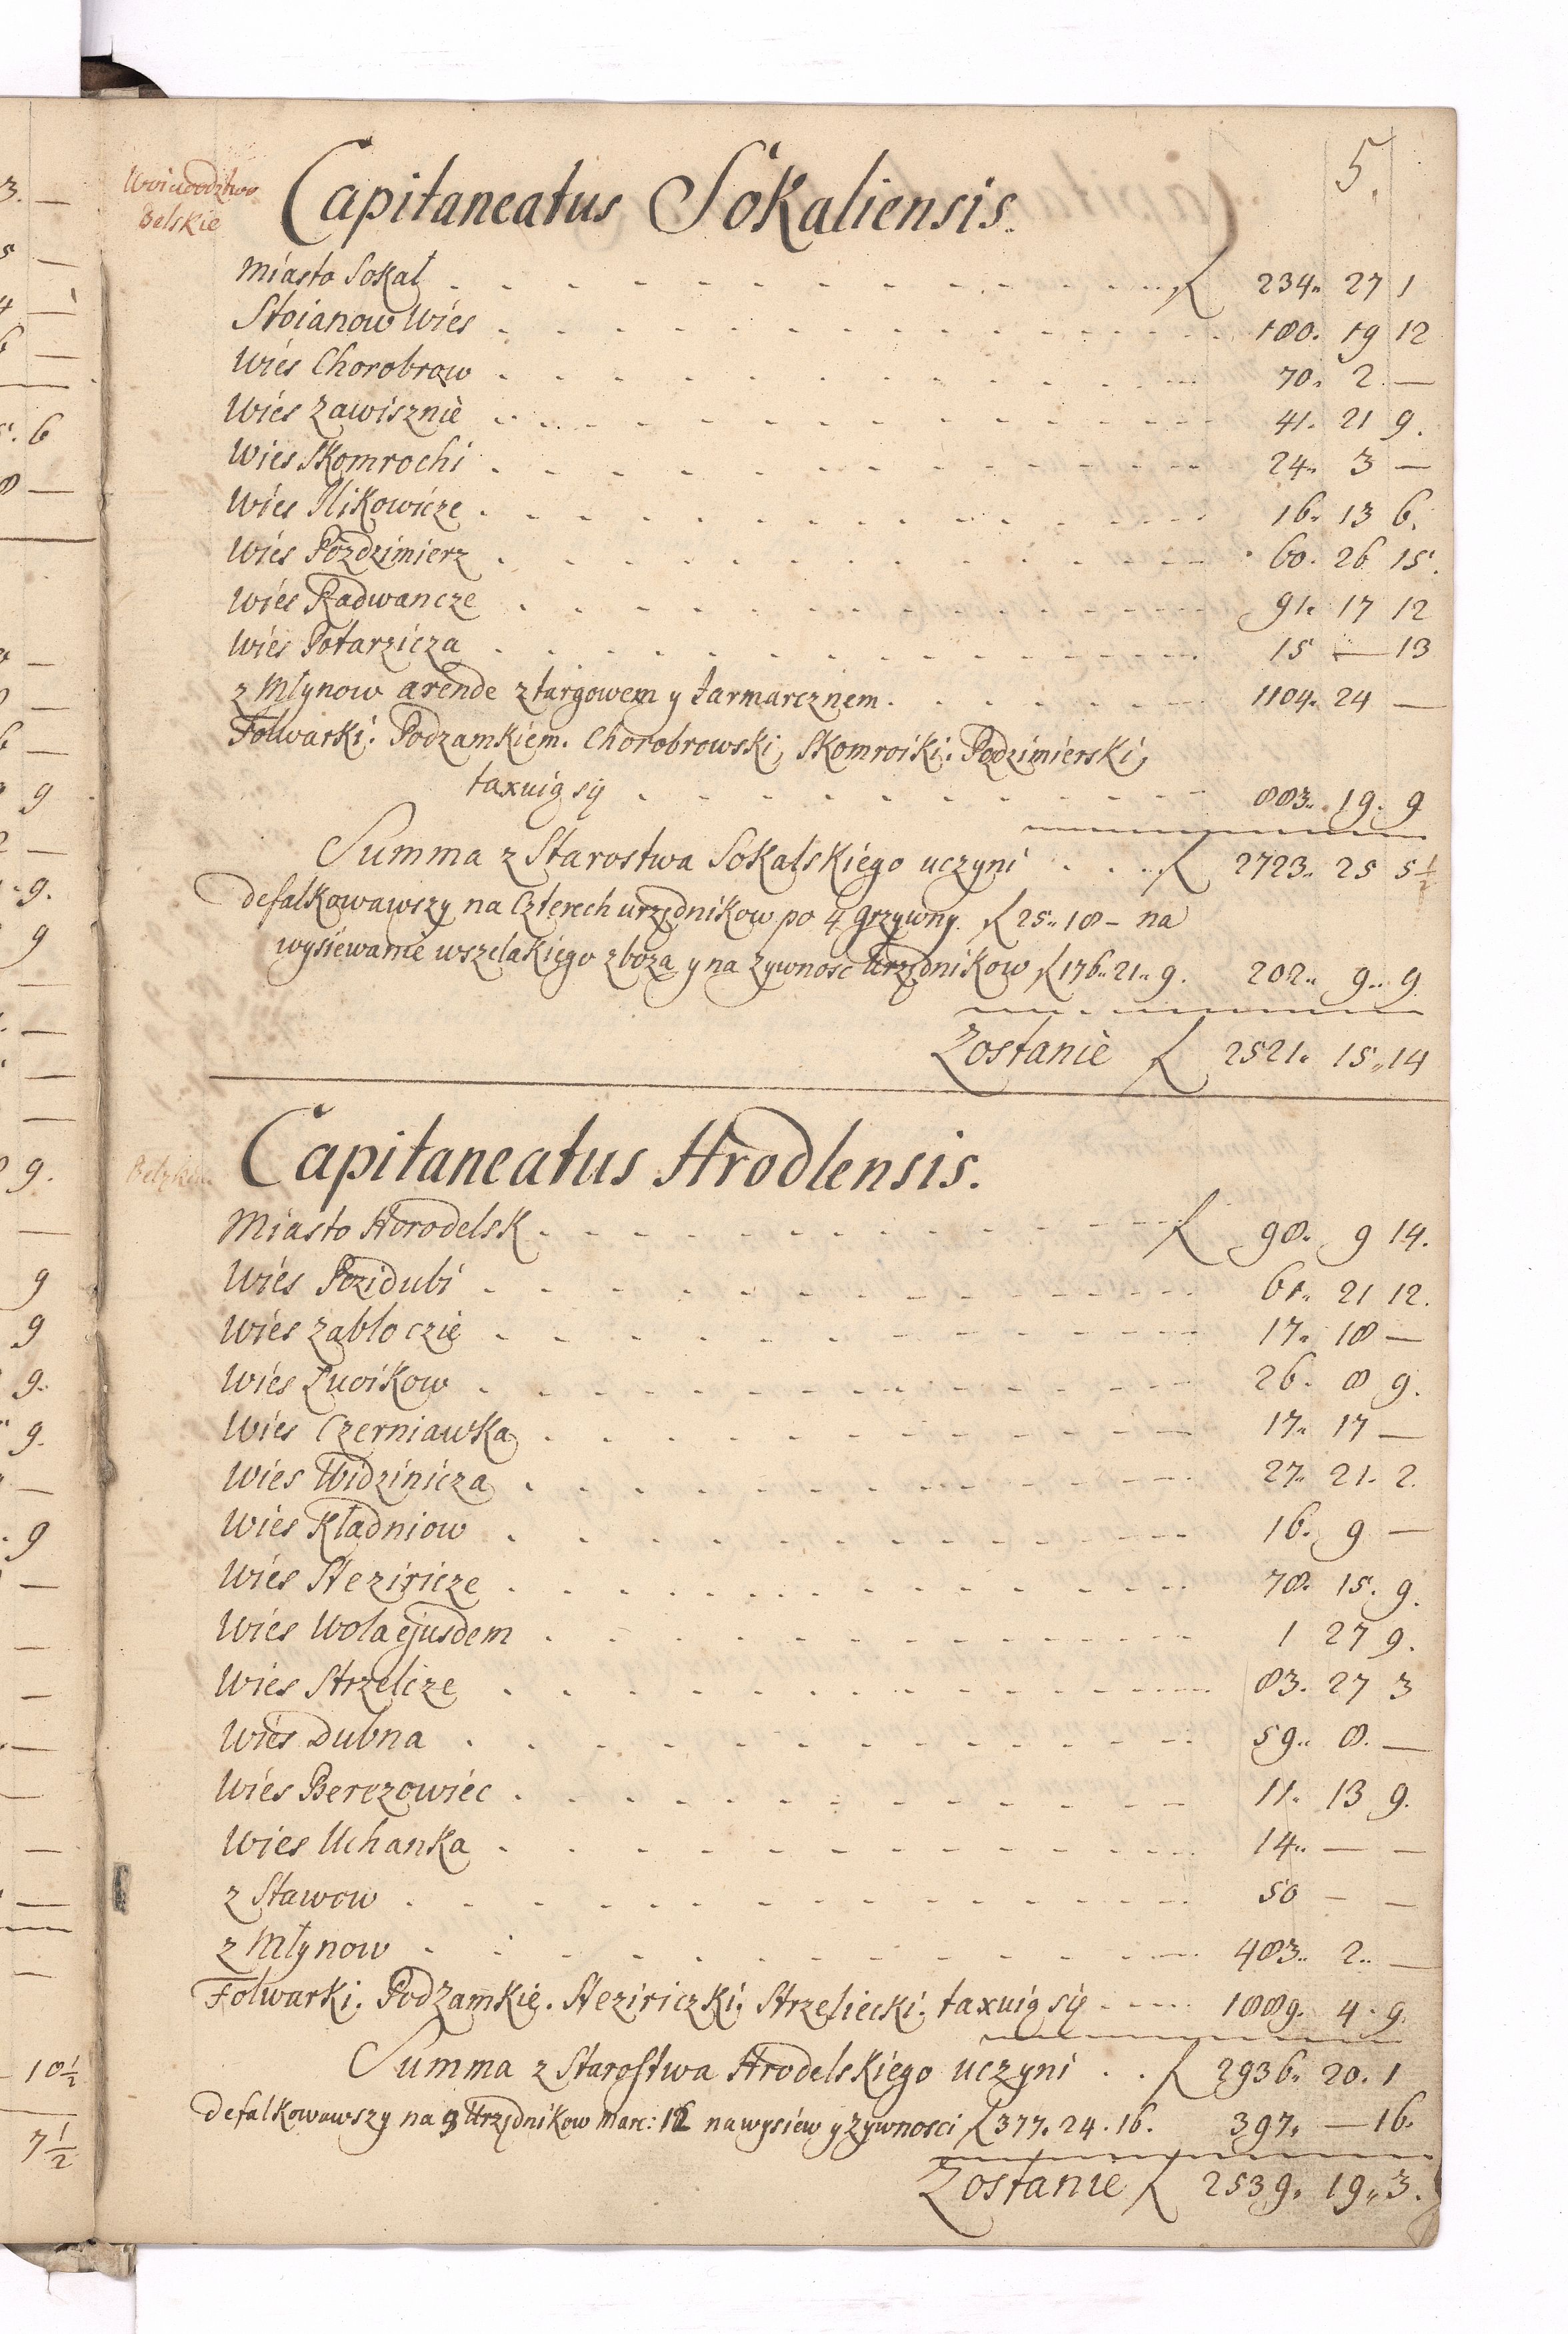 5.
Woiewodztwo
Belskie
Capitaneatus Sokaliensis.
Miasto Sokal ƒ 234. 27 1
Stoianow Wies 180. 19 12
Wies Chorobrow 70. 2 —
Wies Zawisznie 41. 21 9.
Wies Skomrochi 24. 3 —
Wies Ilikowicze 16. 13 6.
Wies Pozdzimierz 60. 26 15.
Wies Radwancze 91. 17 12
Wies Potarzicza 15 — 13
z Młynow arende z targowem y Jarmarcznem. 1104. 24 —
Folwarki. Podzamkiem. Chorobrowski, Skomroiki. Podzimierski,
taxuią się 883. 19. 9
Summa z Starostwa Sokalskiego uczyni ƒ 2723. 25 5½
Defalkowawszy na Czterech urzędnikow po 4 grzywny. ƒ 25. 18 – na
wysiewanie wszelakiego zboza y na Zywnosc Urzędnikow ƒ 176. 21. 9. 202. 9. 9
Zostanie ƒ 2521. 15. 14
Capitaneatus Hrodlensis.
Miasto Horodelsk ƒ 98. 9 14.
Wies Pozidubi 61. 21 12.
Wies Zabłoczie 17. 18 —
Wies Luoikow 26. 8 9.
Wies Czerniawka 17. 17 —
Wies Widzinicza 27. 21. 2.
Wies Kładniow 16. 9 —
Wies Steziricze 78. 15. 9.
Wies Wola ejusdem 1 27 9.
Wies Strzelcze 83. 27 3
Wies Dubna 59. 8. —
Wies Berezowiec 11. 13 9.
Wies Uchanka 14. — —
z Stawow 50 — —
z Młynow 483. 2. —
Folwarki. Podzamkie. Steziriczki, Strzeliecki. taxuią się 1889. 4. 9.
Summa z Starostwa Hrodelskiego uczyni ƒ 2936. 20. 1
Defalkowawszy na 3 Urzędnikow Marc: 12 na wysiew y Zywnosci ƒ 377. 24. 16. 397. — 16.
Zostanie ƒ 2539. 19. 3.